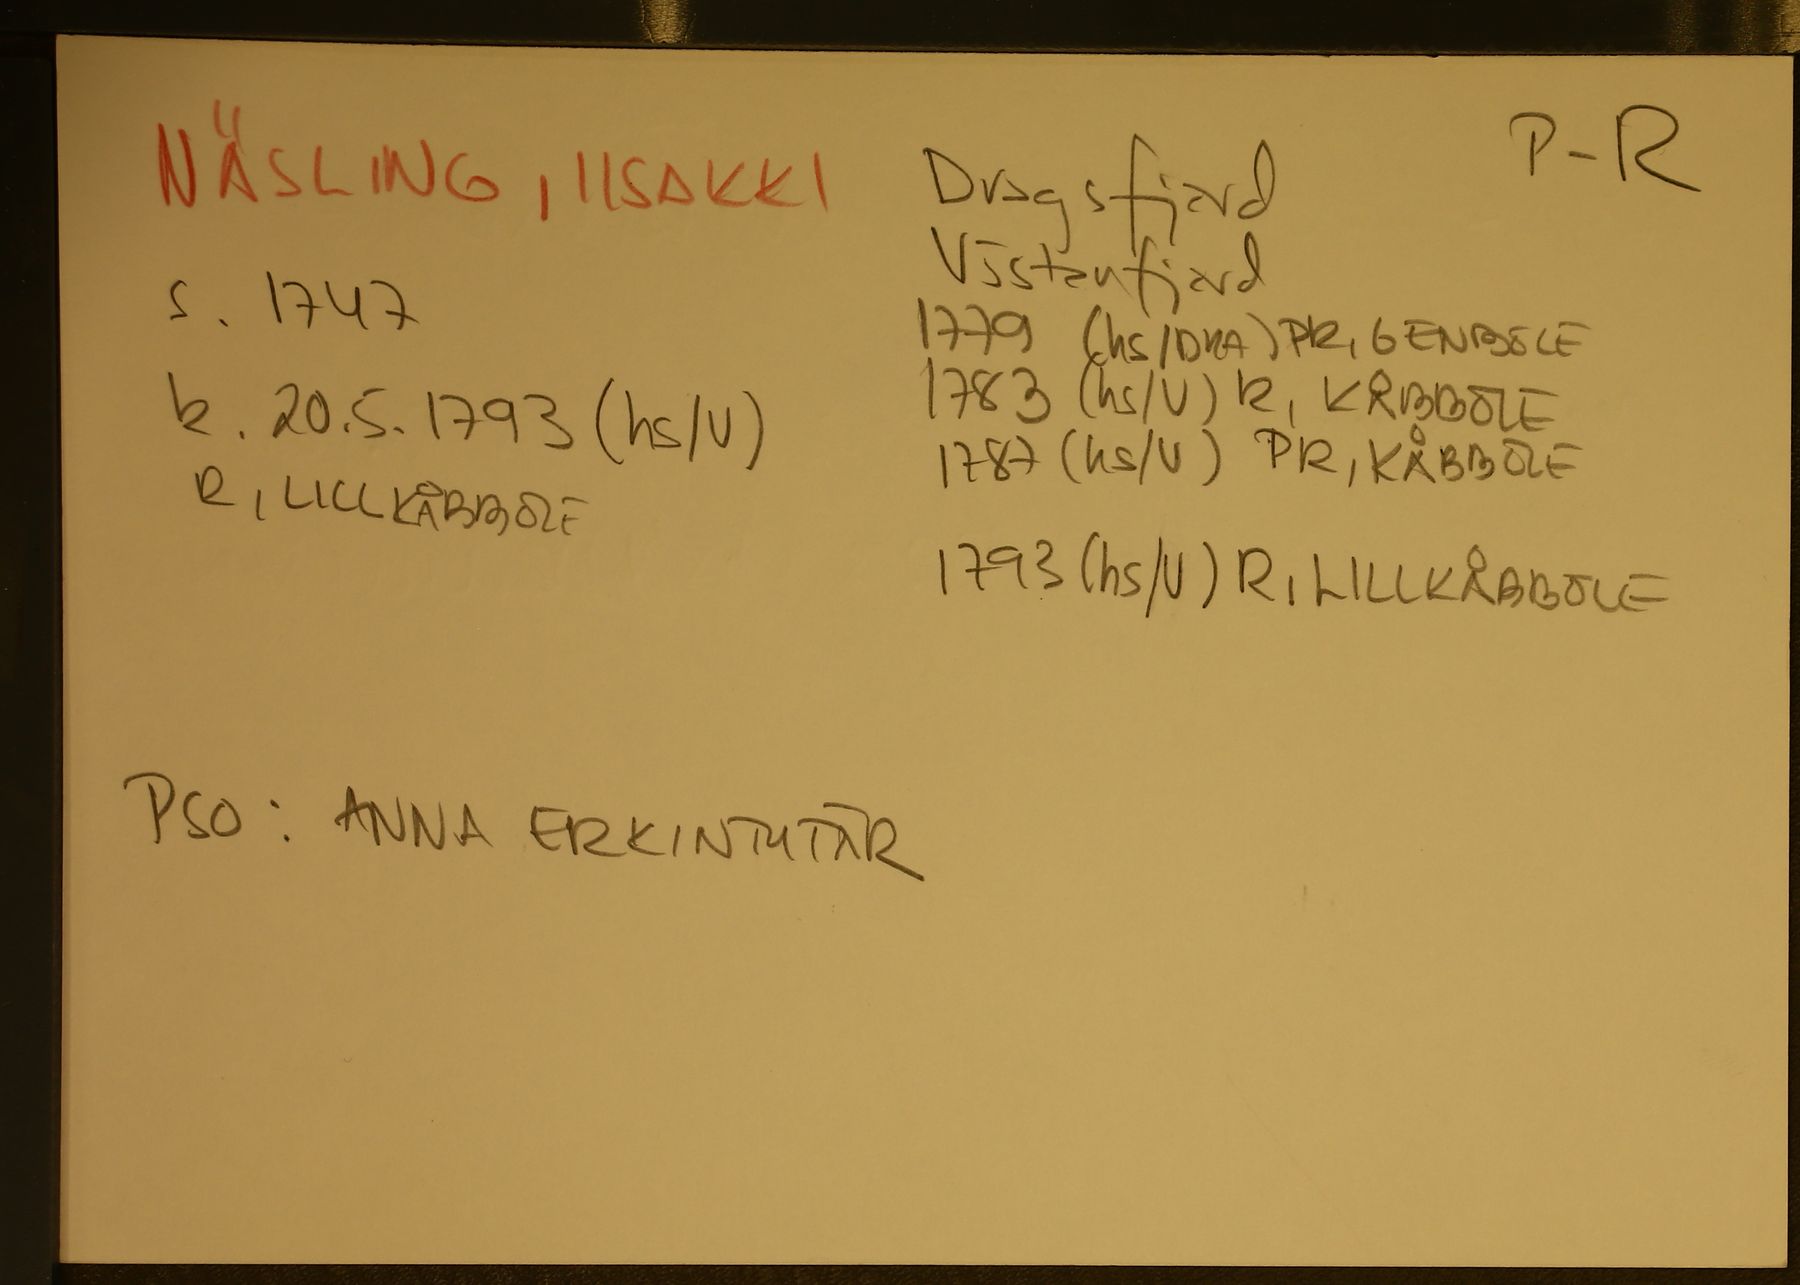 NÄSLING, IISAKKI
s. 1747
k. 20.5.1793 (hs/V)
R, LILLKÅBBÖLE
P-R
Dragsfjard
Västanfjard
1779 (hs/DRA) PR, GENBÖLE
1783 (hs/V) R, KÅBBÖLE
1787 (hs/V) PR, KÅBBÖLE
1793 (hs/V) R, LILLKÅBBÖLE
PSO: ANNA ERKINTYTÄR